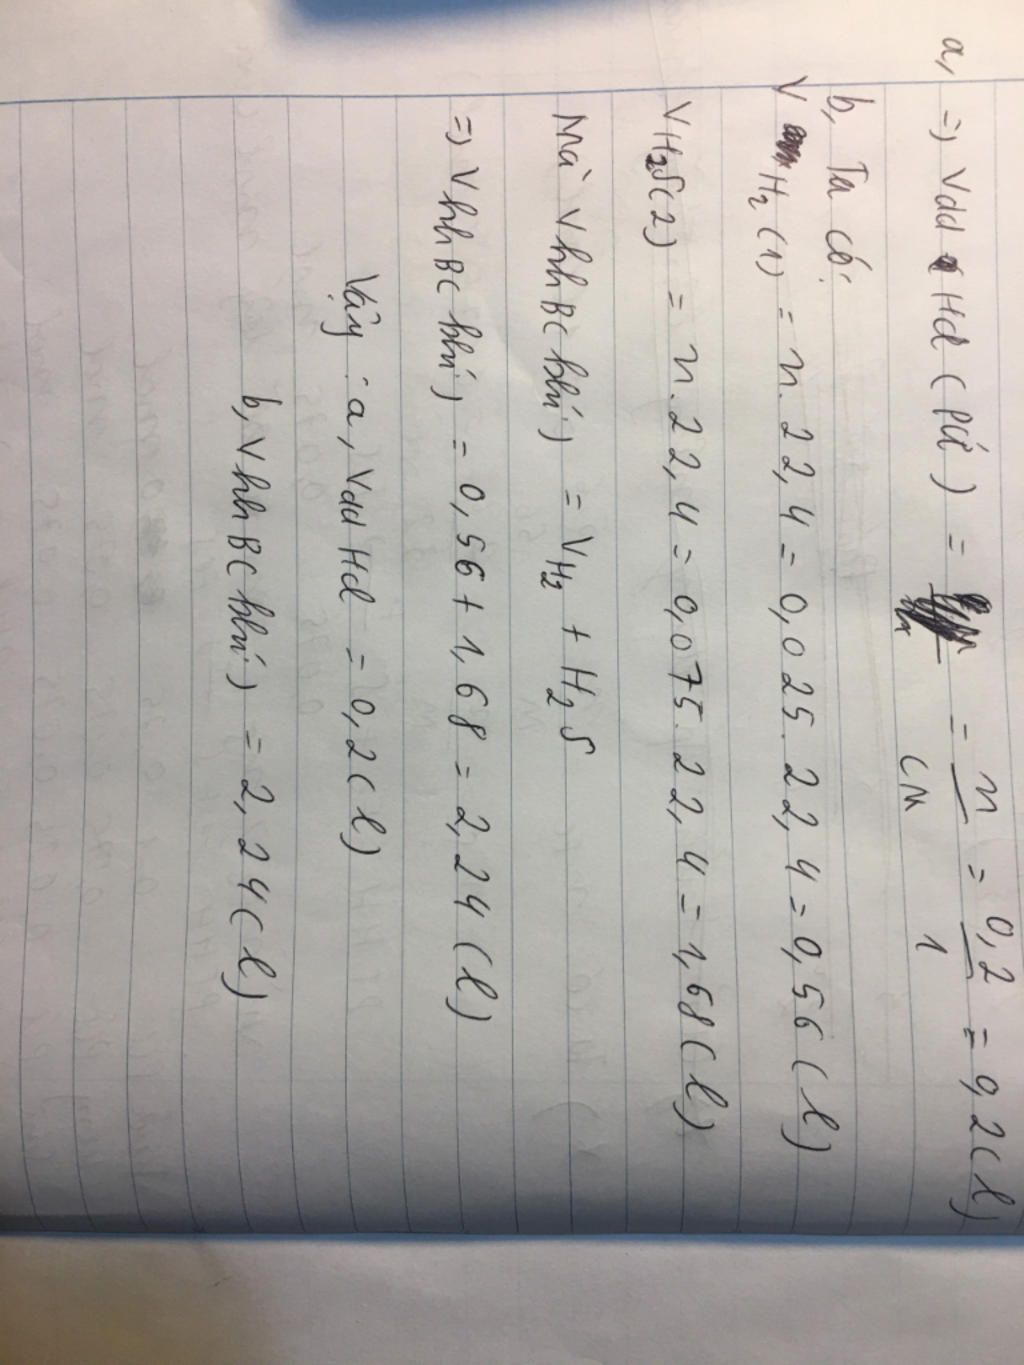 a, => Vdd HCl (pứ) = = n/CM = 0,2/1 = 0,2 (l)
b, Ta có:
V H2 (1) = n. 22,4 = 0,025. 22,4 = 0,56 (l)
VH2S(2) = n. 22,4 = 0,075. 22,4 = 1,68 (l)
Mà V hh B( khí) = VH2 + H2S
=> V hh B( khí) = 0,56 + 1,68 = 2,24 (l)
Vậy : a, Vdd HCl = 0,2 (l)
b, V hh B( khí) = 2,24 (l)